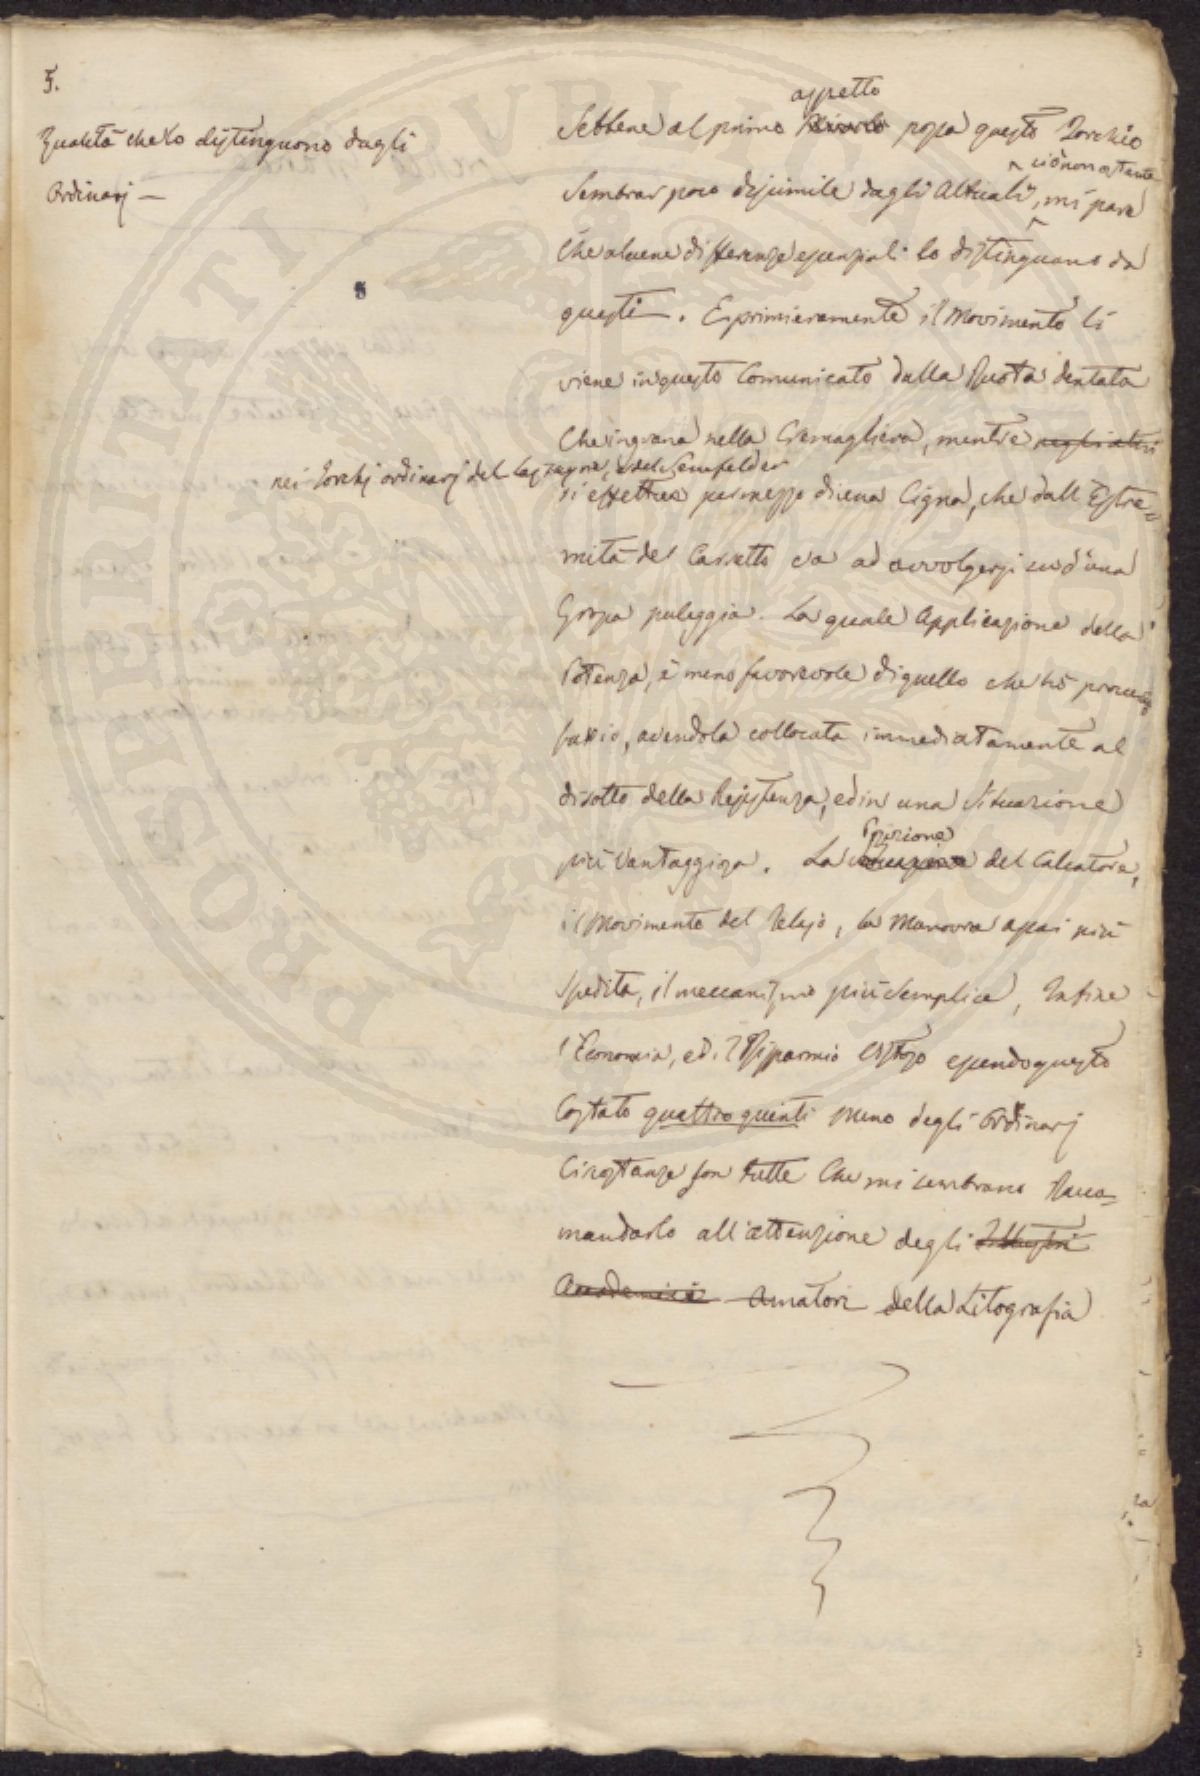 5.
Qualità che lo distinguono dagli
Ordinarj —
aspetto
Sebbene al primo possa questo Torchio
ciò non ostante
Sembrar poco dissimile dagli Attuali, mi pare
Che alcune differenze essenziali lo distinguano da
questi. E primieramente il Movimento li
viene in questo Comunicato dalla Ruota dentata
Che ingrana nella Cremagliera, mentre negli altri
nei Torchj ordinarj del e del Senefelder
si effettua per mezzo di una Cigna, che dall'Estre=
mità del Carretto va ad avvolgersi su d'una
Grossa puleggia. La quale Applicazione della
Potenza, è meno favorevole di quello che hò
avendola collocata immediatamente al
disotto della Resistenza, ed in una Situazione
Posizione
più Vantaggiosa. La situazione del Calcatore,
il Movimento del Telajo, la Manovra assai più
Spedita, il meccanismo più Semplice, Infine
l'Economia, ed il Risparmio essendo questo
Costato quattro quinti meno degli Ordinarj
Circostanze son tutte Che mi sembrano Racco=
mandarlo all'attenzione degli Illustri
Accademici Amatori della Litografia